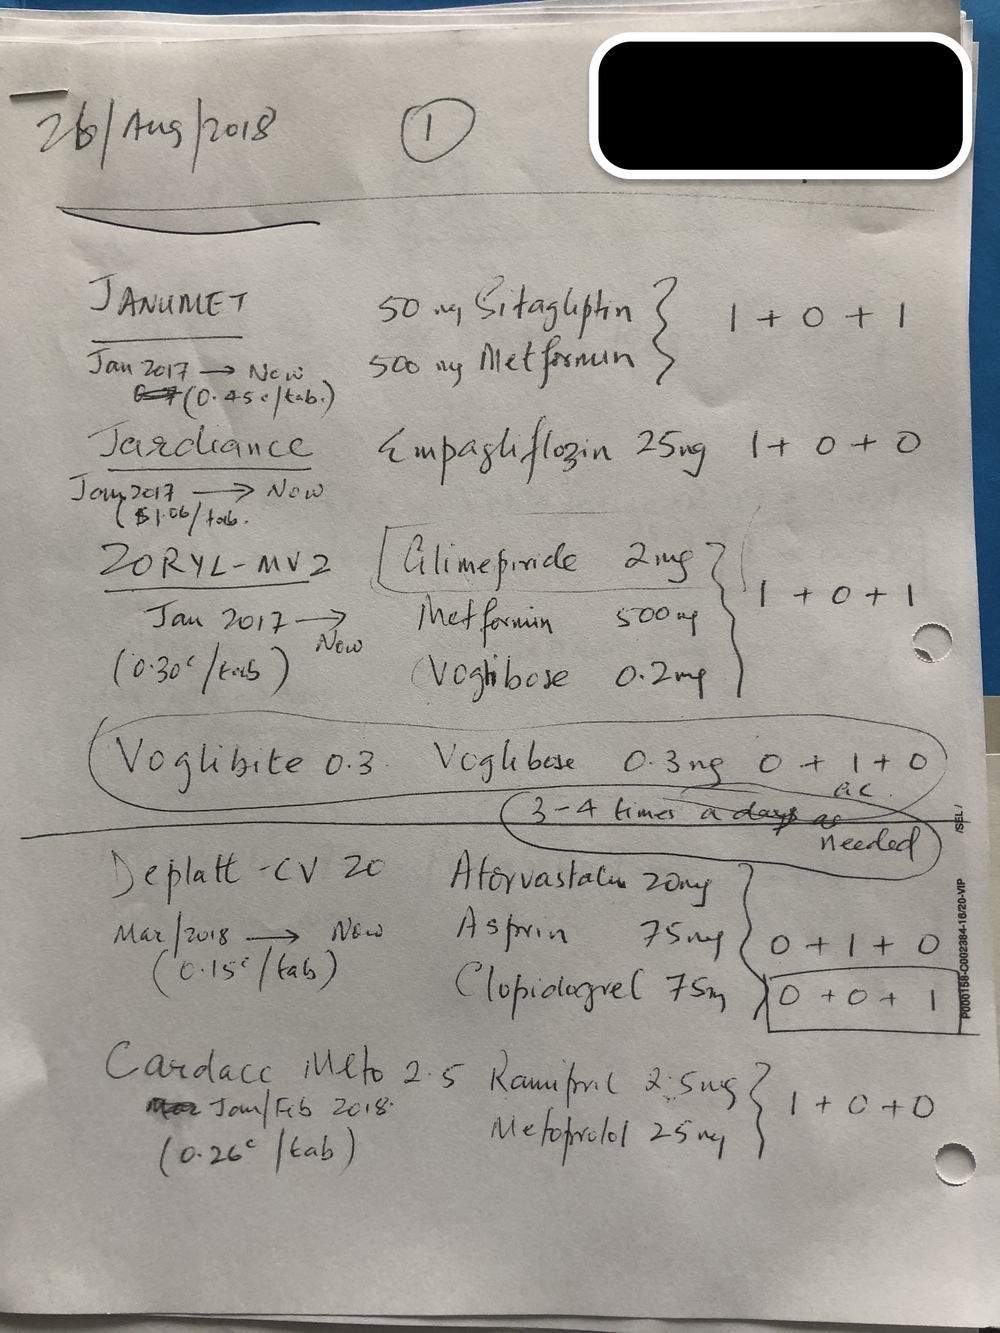 26/Aug/2018 1
JANUMET 50 mg Sitagliptin } 1 + 0 + 1
Jan 2017 → Now 500 mg Metformin
(0.45c/tab.)
Jardiance Empagliflozin 25mg 1 + 0 + 0
Jan 2017 → Now
($1.06/tab.
ZORYL-MV2 [Glimepiride 2mg } 1 + 0 + 1
Jan 2017 → Now Metformin 500mg
(0.30c/tab) Voglibose 0.2mg
Voglibite 0.3 Voglibose 0.3mg 0 + 1 + 0
ac
3-4 times a days as
needed
Deplatt-CV 20 Atorvastatin 20mg
Mar/2018 → Now Asprin 75mg } 0 + 1 + 0
(0.15c/tab) Clopidogrel 75mg 0 + 0 + 1
Cardace Meto 2.5 Ramipril 2.5mg } 1 + 0 + 0
Jan/Feb 2018. Metoprolol 25mg
(0.26c/tab)
/SEL/
P000158-C002384-16/20-VIP